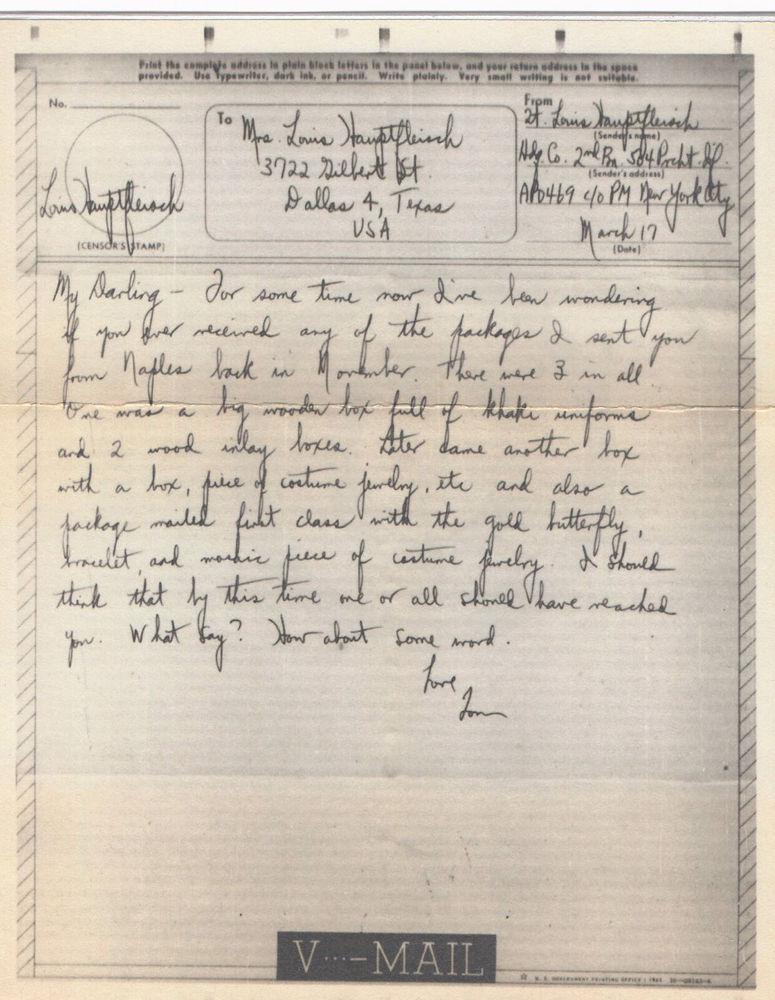 Print the complete address in plain block letters in the panel below, and your return address in the space
provided. Use typewriter, dark ink, or pencil. Write plainly. Very small writing is not suitable.
No.
Louis Hauptfleisch
(CENSOR'S STAMP)
To Mrs. Louis Hauptfleisch
3722 Gilbert St.
Dallas 4, Texas
USA
From
Lt. Louis Hauptfleisch
(Sender's name)
Hdq. Co. 2nd Bn. 504 Prcht. Inf.
(Sender's address)
APO 469 c/o PM New York City
March 17
(Date)
My Darling – For some time now I've been wondering
if you ever received any of the packages I sent you
from Naples back in November. There were 3 in all.
One was a big wooden box full of khaki uniforms
and 2 wood inlay boxes. Later came another box
with a box, piece of costume jewelry, etc and also a
package mailed first class with the gold butterfly,
bracelet, and mosaic piece of costume jewelry. I should
think that by this time one or all should have reached
you. What say? How about some word.
Love
Lou
V···–MAIL
U. S. GOVERNMENT PRINTING OFFICE : 1943